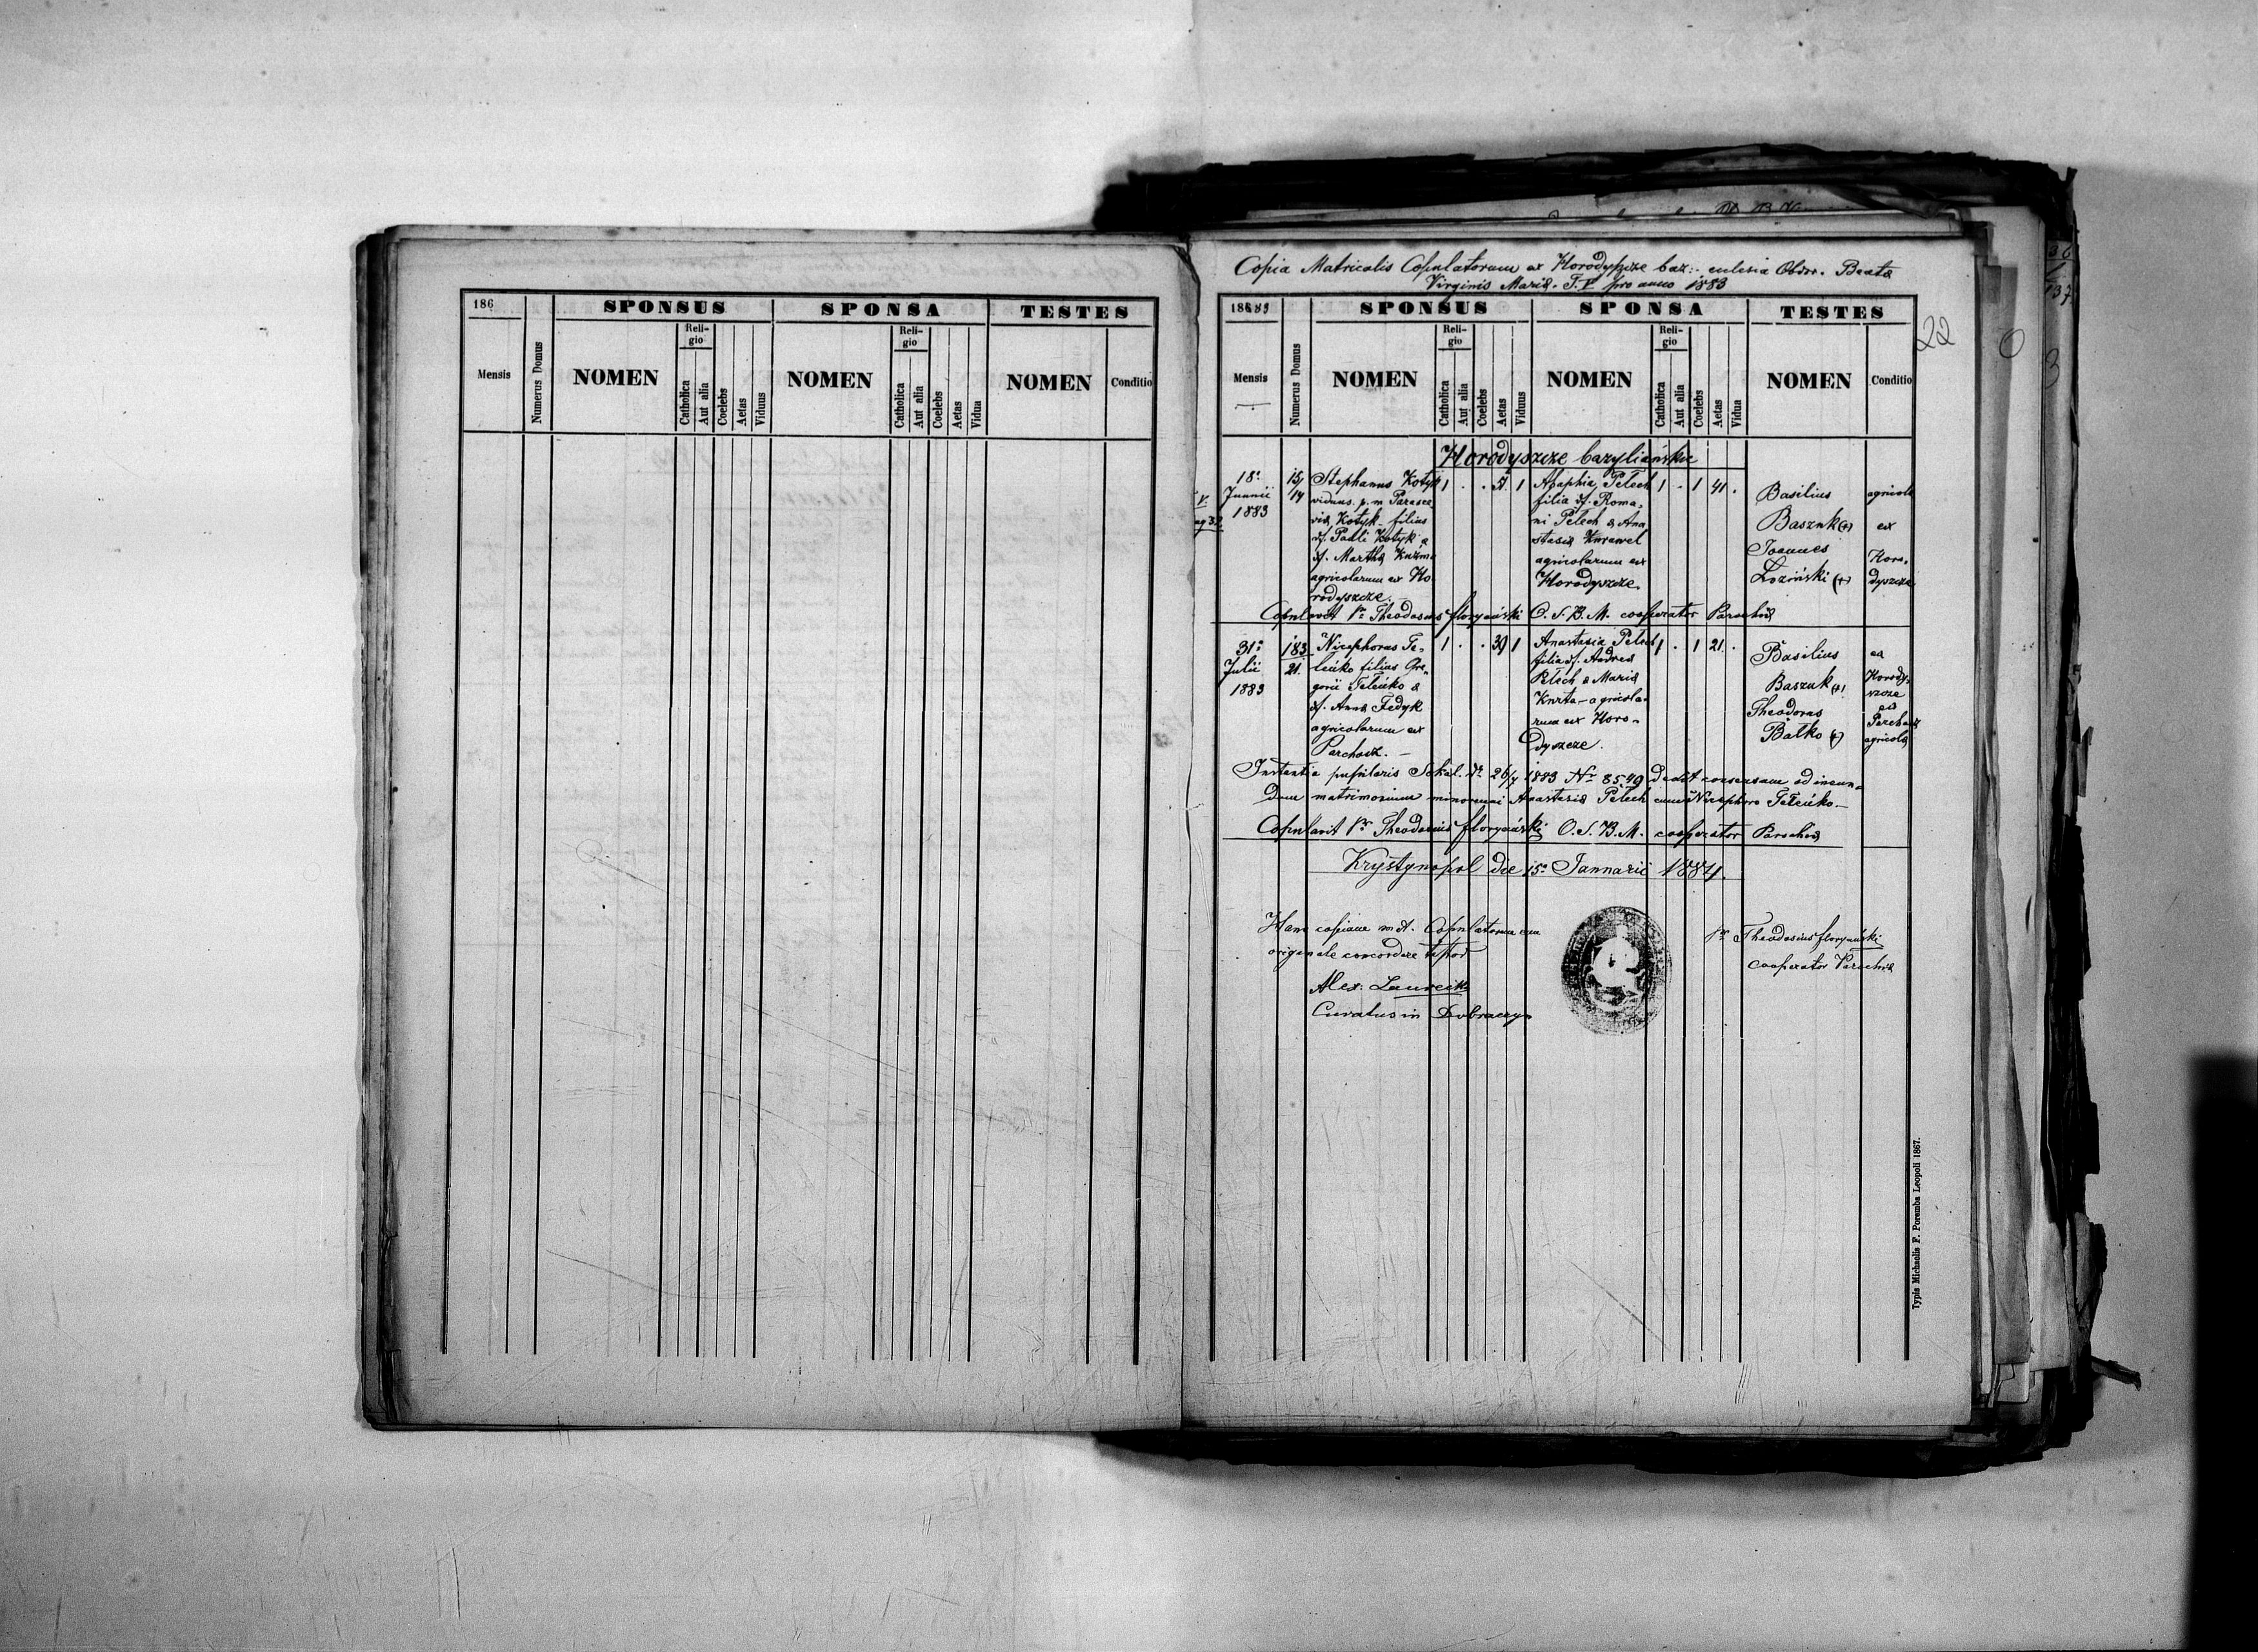 186
SPONSUS SPONSA TESTES
Mensis
Numerus Domus
NOMEN
Religio
Catholica
Aut alia
Coelebs
Aetas
Viduus
NOMEN
Religio
Catholica
Aut alia
Coelebs
Aetas
Vidua
NOMEN
Conditio
Copia Matricalis Copulatorum ex Horodyszcze baz: eclesia Obser. Beatae
Virginis Mariae pro anno 1883
1883
SPONSUS SPONSA TESTES
22
Mensis
Numerus Domus
NOMEN
Religio
Catholica
Aut alia
Coelebs
Aetas
Viduus
NOMEN
Religio
Catholica
Aut alia
Coelebs
Aetas
Vidua
NOMEN
Conditio
Horodyszcze bazyliańskie
18a
Junii
1883
15/14
Stephanus Kotyk
viduus p. m Parasce
viae Kotyk filius
df. Pauli Kotyk &
df. Marthae Kuźma
agricolarum ex Ho
rodyszcze.
1 . . 51 1
Agaphia Pełech
filia df. Roma
ni Pełech & Ana
stasiae Kurawel
agricolarum ex
Horodyszcze.
1 . 1 41 .
Basilius
Baszuk (+)
Joannes
Łoziński (+)
agricolae
ex
Horo
dyszcze
Copulavit Pr Theodosius Floryański O. S. B. M. cooperator Parochiae
31a
Julii
1883
183
21.
Nicephorus Te-
leńko filius Gre-
gorii Teleńko &
df. Annae Fedyk
agricolarum ex
Parchacz. —
1 . . 39 1
Anastasia Pełech
filia df. Andreae
Pełech & Mariae
Kurta - agricola-
rum ex Horo-
dyszcze.
1 . 1 21 .
Basilius
Baszuk (+)
Theodorus
Batko (+)
ex
Horody-
szcze
ex
Parchacz
agricolae
Instantia pupilaris Sokal. dto 26/7 1883 Nr 8549 dedit consensum ad ineun-
dum matrimonium minorenni Anastasiae Pełech cum Nicephoro Teleńko —
Copulavit Pr Theodosius Floryański O. S. B. M. cooperator Parochiae
Krystynopol die 15a Januarii 1884.
Hanc copiam Copulatorum cum
originale concordare testor
Alex: Laurecik
Curatus in Dobraczyn
Pr Theodosius Floryański
cooperator Parochiae
Typis Michaelis F. Poremba Leopoli 1867.